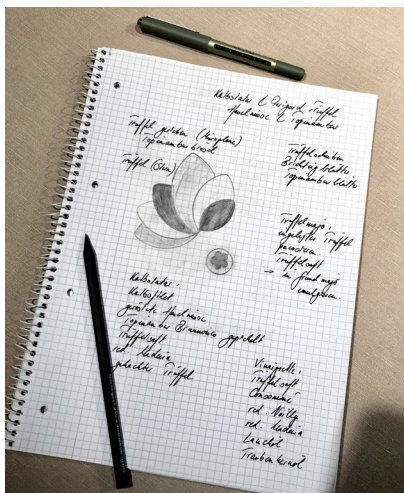 Kalbstatar & Périgord Trüffel
Haselnüsse & Topinambur
Trüffel gerieben (Microplane)
Topinambur
Trüffel
Trüffelscheiben
Topinamburblätter
Trüffelmajo:
eingelegter Trüffel
pacossieren
Trüffelsaft
→ in Grundmajo
Kalbstatar:
Kalbsfilet
geröstete Haselnüsse
Topinambur Brunnoise
Trüffelsaft
red. Madeira
gehackter Trüffel
Vinaigrette:
Trüffelsaft
Consommé
red. Noilly
red. Madeira
Lauchöl
Traubenkernöl